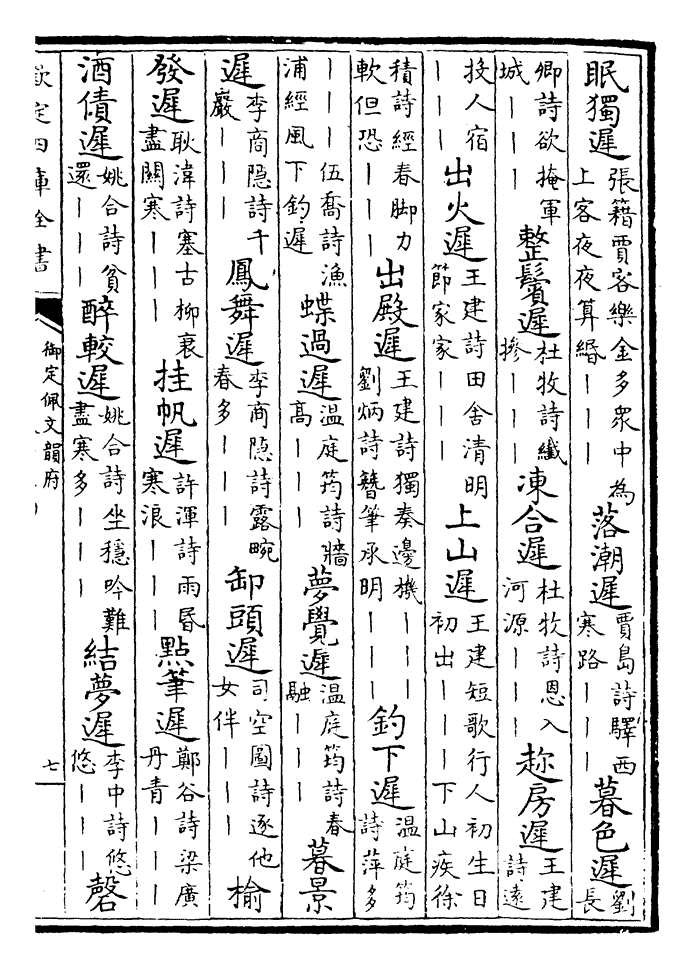 眠獨遲張籍賈客樂金多眾中為上客夜夜算緡｜｜｜落潮遲賈島詩驛西寒路｜｜｜暮色遲劉長
卿詩欲掩軍城｜｜｜整鬢遲杜牧詩纖摻｜｜｜凍合遲杜牧詩恩入河源｜｜｜趂房遲王建詩遠
投人宿｜｜｜出火遲王建詩田舍清明節家家｜｜｜上山遲王建短歌行人初生日初出｜｜｜下山疾徐
積詩經春脚力軟但恐｜｜｜出殿遲王建詩獨奏邊機｜｜｜劉炳詩簪筆承明｜｜｜釣下遲溫庭筠詩萍多
｜｜｜伍喬詩漁浦經風下釣遲蝶過遲溫庭筠詩牆高｜｜｜夢覺遲溫庭筠詩春融｜｜｜暮景
遲李商隱詩千巖｜｜｜鳳舞遲李商隱詩露畹春多｜｜｜卸頭遲司空圖詩逐他女伴｜｜｜榆
發遲耿湋詩塞古柳衰盡關寒｜｜｜挂帆遲許渾詩雨昏寒浪｜｜｜點筆遲鄭谷詩梁廣丹青｜｜｜
酒債遲姚合詩貧還｜｜｜醉較遲姚合詩坐穩吟難盡寒多｜｜｜結夢遲李中詩悠悠｜｜｜磬
欽定四庫全書
御定佩文韻府
七